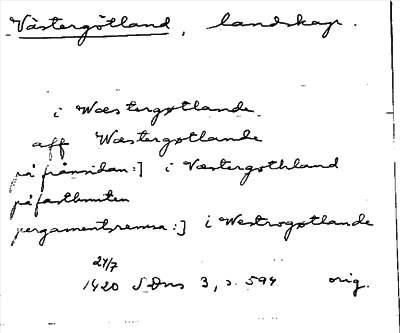 Västergötland, landskap.
i Wæstergøtlande
aff Wæstergøtlande
på frånsidan:] i Væstergøthland
på fasthuuten
pergamentsremsa:] i Westrogøtlande
24/7
1420 SDns 3, s. 594 orig.